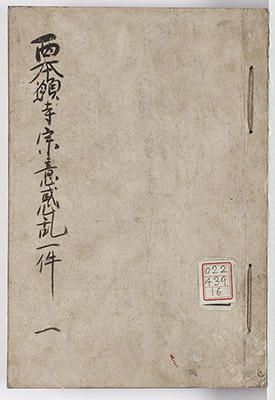 西本願寺宗意惑乱一件 一
022
439
16